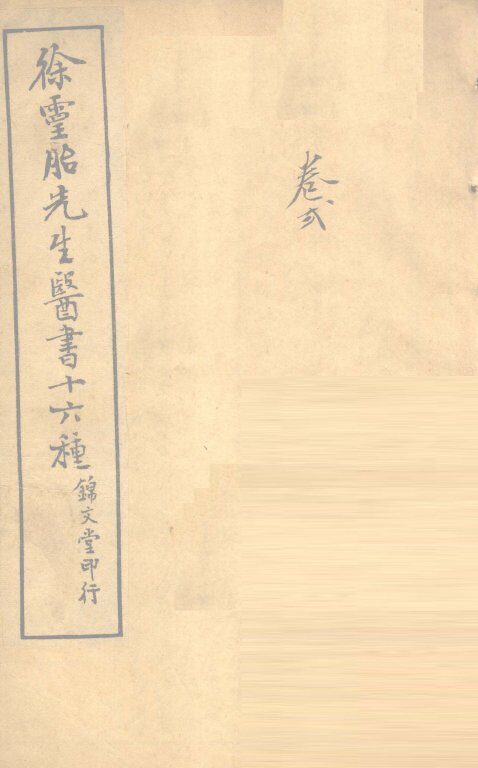 卷弍
徐靈胎先生醫書十六種
錦文堂印行